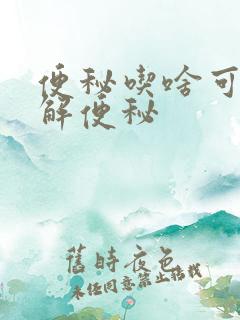 便秘喫啥可
解便秘
舊時夜色
未经同意禁止搭栈